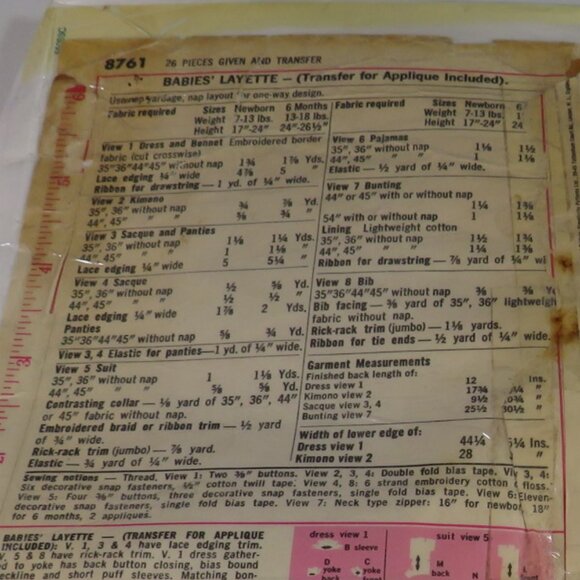 8761 26 PIECES GIVEN AND TRANSFER
BABIES' LAYETTE — (Transfer for Applique Included).
yardage, nap layout for one-way design.
Fabric required Sizes Newborn 6 Months
Weight 7-13 lbs. 13-18 lbs.
Height 17"-24" 24"-26½"
View 1 Dress and Bonnet Embroidered border
fabric (cut crosswise)
35"36"44"45" without nap 1¾ 1⅞ Yds.
Lace edging ¼" wide 4⅞ 5 "
Ribbon for drawstring — 1 yd. of ¼" wide.
View 2 Kimono
35", 36" without nap ¾ ⅞ Yd.
44", 45" " " ⅝ ¾ "
View 3 Sacque and Panties
35", 36" without nap 1⅛ 1¼ Yds.
44", 45" " " 1 1⅛ "
Lace edging ¼" wide 5 5¼ "
View 4 Sacque
35", 36" without nap ½ ⅝ Yd.
44", 45" " " ½ ½ "
Lace edging ¼" wide 1⅞ 2 Yds.
Panties
35"36"44"45" without nap ⅝ ¾ Yd.
View 3, 4 Elastic for panties — 1 yd. of ¼" wide.
View 5 Suit
35", 36" without nap 1 1⅛ Yds.
44", 45" " " ⅝ ⅝ Yd.
Contrasting collar — ⅛ yard of 35", 36", 44"
or 45" fabric without nap.
Embroidered braid or ribbon trim — ½ yard
of ¾" wide.
Rick-rack trim (jumbo) — ⅞ yard.
Elastic — ¾ yard of ¼" wide.
Fabric required Sizes Newborn 6
Weight 7-13 lbs. 1
Height 17"-24" 24
View 6 Pajamas
35", 36" without nap 1½ 1½
44", 45" " " 1 1⅛
Elastic — ½ yard of ¼" wide.
View 7 Bunting
44" or 45" with or without nap
1¼ 1⅜
54" with or without nap 1 1
Lining Lightweight cotton
35", 36" without nap 1½ 1¾
44", 45" " " 1¼ 1⅜
Ribbon for drawstring — ⅞ yard of ¼" wi
View 8 Bib
35"36"44"45" without nap ⅜ ⅜ Y
Bib facing — ⅜ yard of 35", 36" lightweigh
fabric without nap.
Rick-rack trim (jumbo) — 1⅛ yards.
Ribbon for tie ends — ½ yard of ¼" wide.
Garment Measurements
Finished back length of:
Dress view 1 12 Ins.
Kimono view 2 17¾ "
Sacque view 3, 4 9½ "
Bunting view 7 25½ 30½ "
Width of lower edge of:
Dress view 1 44¼ Ins.
Kimono view 2 28 "
Sewing notions — Thread, View 1: Two ⅜" buttons. View 2, 3, 4: Double fold bias tape. View 3, 4:
Six decorative snap fasteners, ½" cotton twill tape. View 4, 8: 6 strand embroidery cotton floss.
View 5: Four ⅜" buttons, three decorative snap fasteners, single fold bias tape. View 6: Eleven
decorative snap fasteners, single fold bias tape. View 7: Neck type zipper: 16" for newborn, 18"
for 6 months, 2 appliques.
BABIES' LAYETTE — (TRANSFER FOR APPLIQUE
INCLUDED): V. 1, 3 & 4 have lace edging trim.
V. 5 & 8 have rick-rack trim. V. 1 dress gather-
ed to yoke has back button closing, bias bound
neckline and short puff sleeves. Matching bon-
dress view 1
B sleeve
D yoke back
C yoke front
suit view 5
M back
N
L